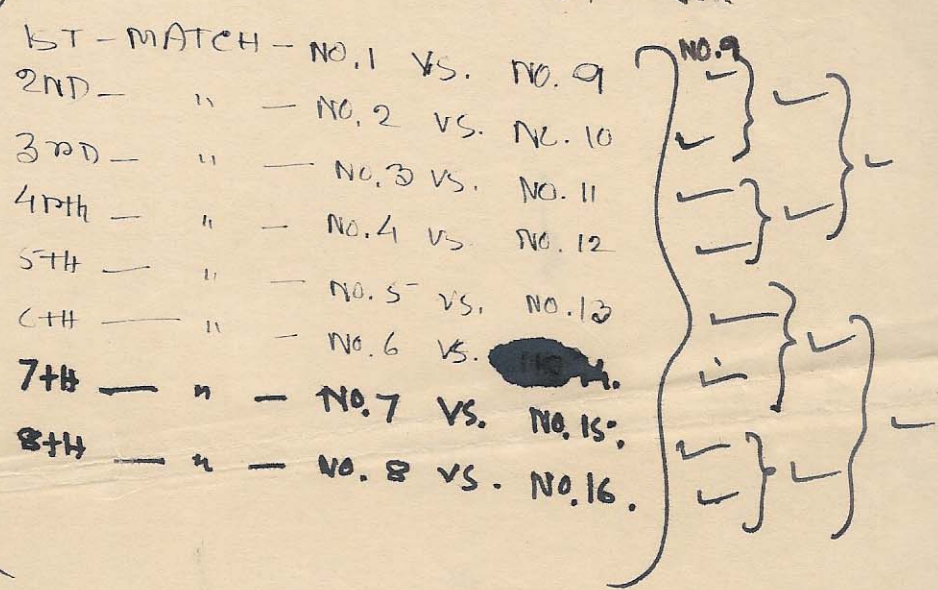 1ST - MATCH - NO.1 VS. NO. 9 NO.9
2ND - " - NO. 2 VS. NO. 10
3RD - " - NO. 3 VS. NO. 11
4RTH - " - NO. 4 VS. NO. 12
5TH - " - NO. 5 VS. NO. 13
6TH - " - NO. 6 VS.
7TH - " - NO. 7 VS. NO. 15.
8TH - " - NO. 8 VS. NO. 16.